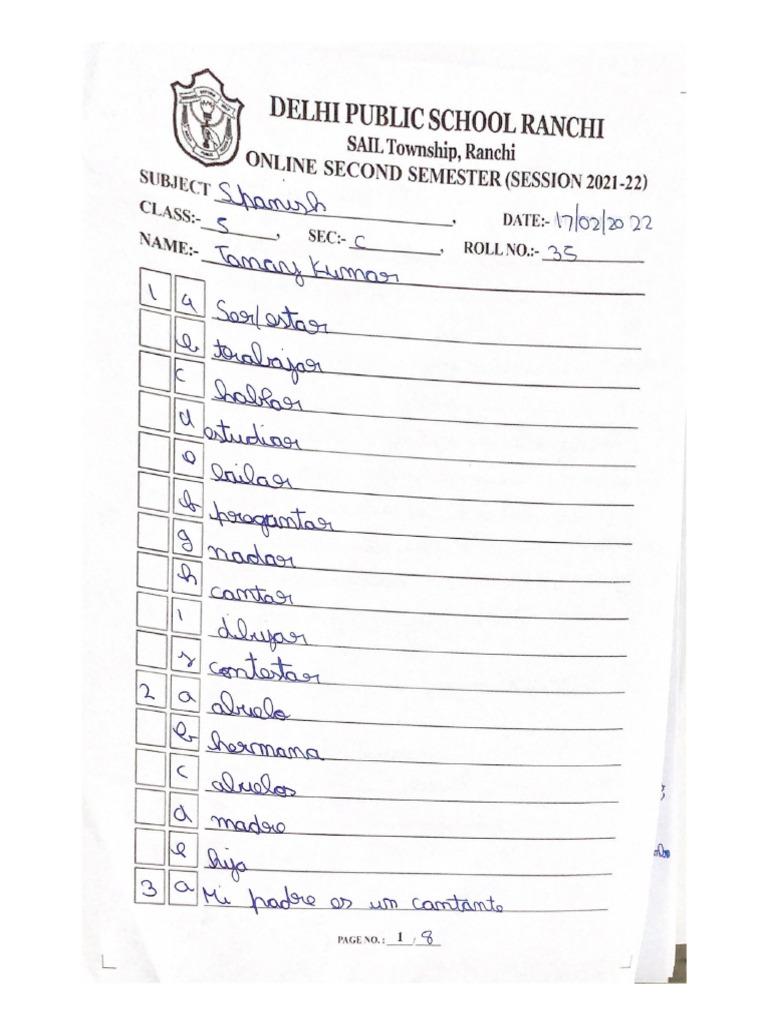 DELHI PUBLIC SCHOOL RANCHI
SAIL Township, Ranchi
ONLINE SECOND SEMESTER (SESSION 2021-22)
SUBJECT Spanish, DATE:- 17/02/2022
CLASS:- 5, SEC:- C, ROLL NO.:- 35
NAME:- Tanary Kumar
1 a Ser/estar
b terabajar
c hablar
d estudiar
e bailar
b pregantar
g nadar
h cantar
i dibujar
r contestar
2 a abuelo
b hermana
c abuelos
d madre
e hijo
3 a Mi padre es un cantante
PAGE NO. : 1 / 8